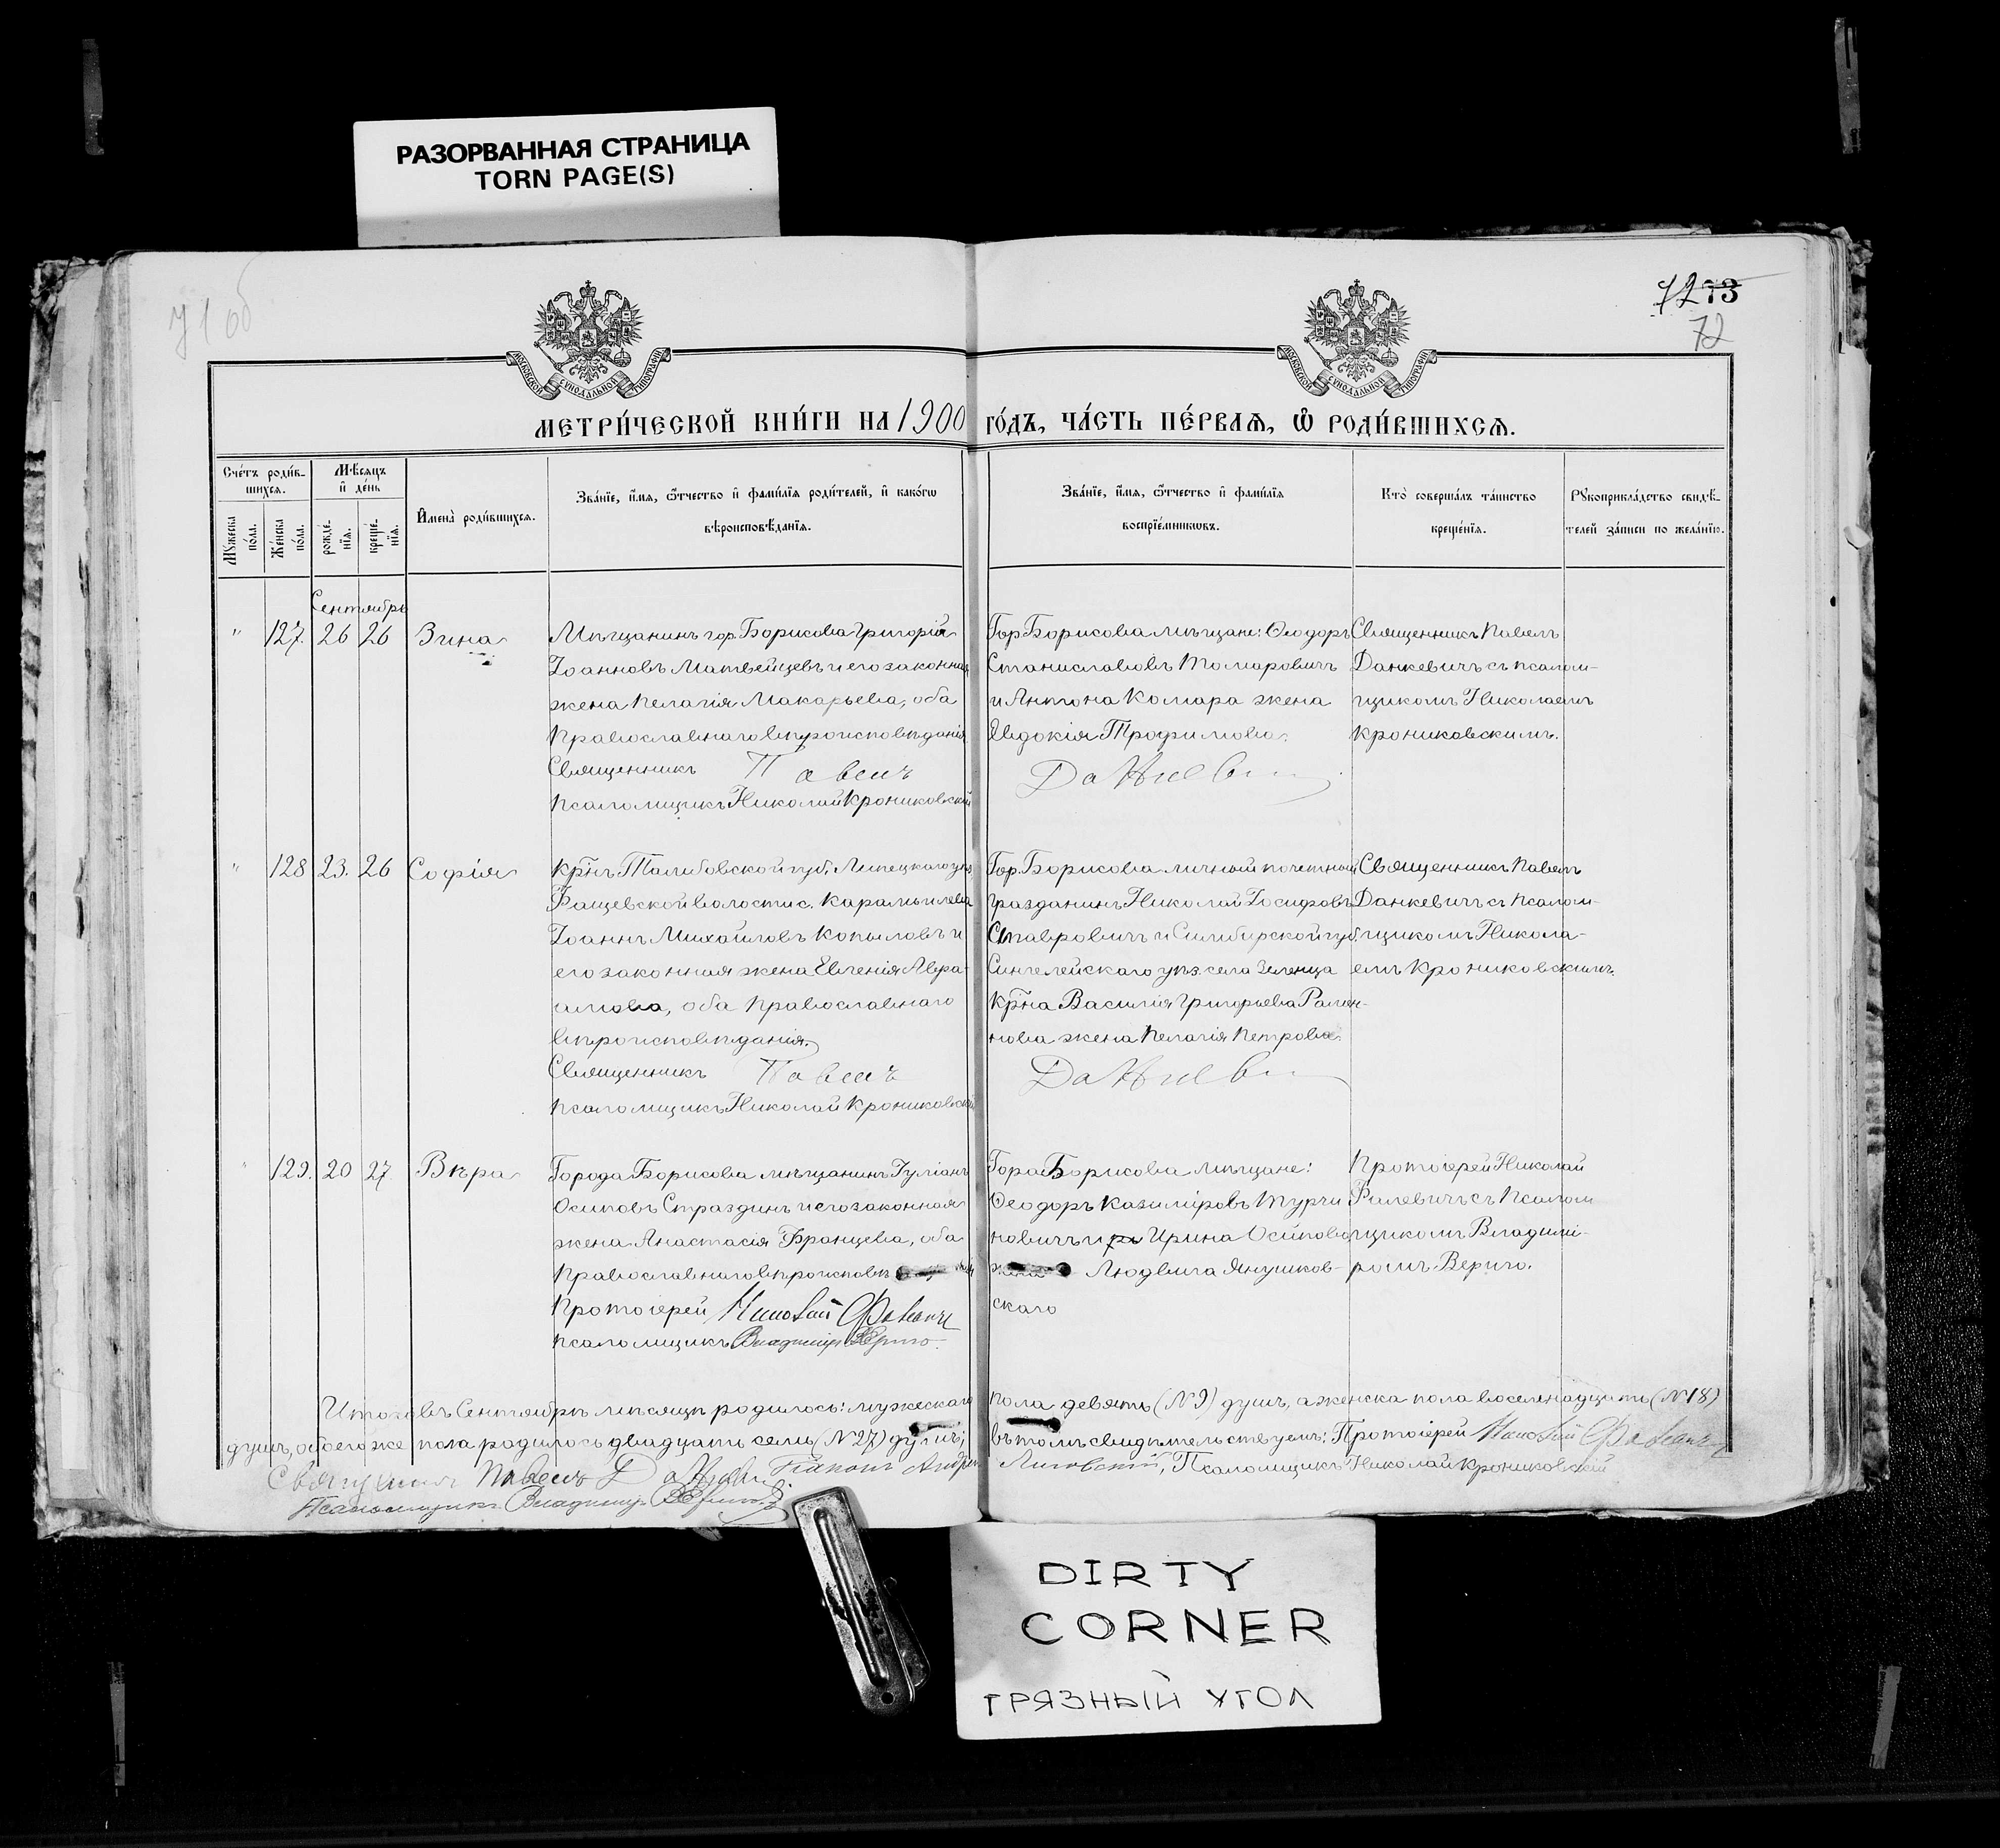 РАЗОРВАННАЯ СТРАНИЦА
TORN PAGE(S)
71 об
72 73
72
МОСКОВСКОЙ СѴНОДАЛЬНОЙ ТИПОГРАФІИ
МОСКОВСКОЙ СѴНОДАЛЬНОЙ ТИПОГРАФІИ
МЕТРИ́ЧЕСКОЙ КНИ́ГИ НА 1900 ГО́ДЪ, ЧА́СТЬ ПЕ́РВАѦ, Ѽ РОДИ́ВШИХСѦ.
Сче́тъ роди́в-
шихсѧ.
Мѣ́сѧцъ
и҆ де́нь
Мꙋ́жеска по́ла.
Же́нска по́ла.
рожде́-нїѧ.
креще́-нїѧ.
И҆мена̀ роди́вшихсѧ.
Зва́нїе, и҆́мѧ, ѻ҆́тчество и҆ фами́лїѧ роди́телей, и҆ како́гѡ
вѣроисповѣ́данїѧ.
Зва́нїе, и҆́мѧ, ѻ҆́тчество и҆ фами́лїѧ
воспрїе́мникѡвъ.
Кто̀ соверша́лъ та́инство
креще́нїѧ.
Рꙋкоприкла́дство свидѣ́-
телей за́писи по жела́нїю.
Сентябрь
" 127. 26 26 Зина
Мѣщанинъ гор. Борисова Григорій
Іоанновъ Матвейцевъ и его законная
жена Пелагія Макарьева, оба
православнаго вѣроисповѣданія
Священникъ Павелъ
Псаломщикъ Николай Крониковскій
Гор. Борисова мѣщане: Ѳеодоръ
Станиславовъ Томаровичъ
и Антона Комара жена
Евдокія Трофимова.
Священникъ Павелъ
Данкевичъ съ псалом-
щикомъ Николаемъ
Крониковскимъ.
" 128 23. 26 София
Кр̃нъ Тамбовской губ. Липецкаго уѣз.
Фащевской волости с.
Іоаннъ Михайловъ Копыловъ и
его законная жена Евгенія Авра-
амова, оба православнаго
вѣроисповѣданія.
Священникъ Павелъ
Псаломщикъ Николай Крониковскій
Гор. Борисова личный почетный
гражданинъ Николай Іосифовъ
Ставровичъ и Симбирской губ.
Сингелейскаго уѣз. села Зеленца
кр̃на Василія Григорьева
жена Пелагія Петрова.
Священникъ Павелъ
Данкевичъ съ псалом-
щикомъ Никола-
емъ Крониковскимъ.
" 129. 20 27 Вѣра
Города Борисова мѣщанинъ Іуліанъ
Осиповъ Страздинъ и его законная
жена Анастасія Францева, оба
православнаго вѣроисповѣ
Протоіерей Николай
Псаломщикъ Владимиръ Вериго.
Гора Борисова мѣщане:
Ѳеодоръ Казиміровъ Турчи
новичъ и Ирина Осипова
жена Людвига Янушков-
скаго
Протоіерей Николай
съ псалом
щикомъ Владимі-
ромъ Вериго.
Итого въ Сентябрѣ мѣсяцѣ родилось: мужескаго пола девять (№ 9) душъ, а женска пола восемнадцать (№ 18)
душъ, обоего же пола родилось двадцать семь (№ 27) душъ; въ томъ свидѣтельствуемъ: Протоіерей Николай
Священникъ Павелъ Псаломщикъ Николай Крониковскій
Псаломщикъ Владимиръ Вериго.
DIRTY
CORNER
ГРЯЗНЫЙ УГОЛ